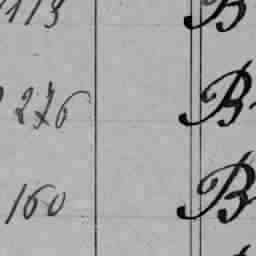 113 B
276 B
160 B